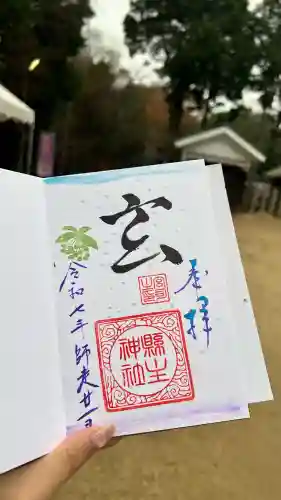 奉拝
玄
縣主神社
令和七年師走廿一日